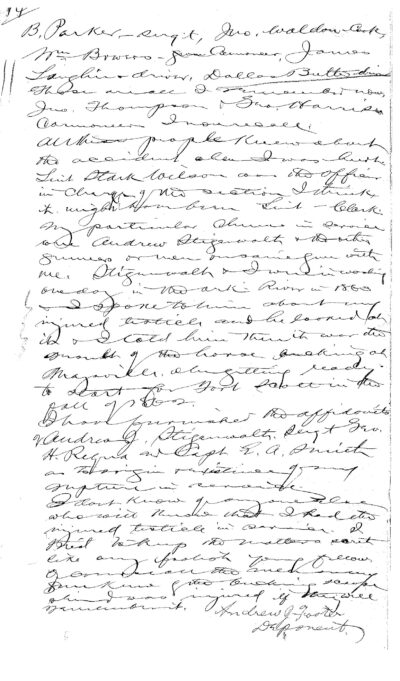 14
B. Parker - Sergt, Jno. Waldon - Cook,
Wm Bowers - Cannoner, James
Laughlin driver, Dallas Butts driver
These are all I remember now,
Jno. Thompson & Geo. Harrison
Cannoneers I now recall.
All these people knew about
the accident when I was hurt.
Lieut Stark Wilson was the officer
in charge of the section I think
it might have been Lieut - Clark
My particular chums in service
were Andrew Stigenwalt & the other
gunners or men on same gun with
me. Stigenwalt & I were in wading
one day in the Ark. River in 1863
& I spoke to him about my
injured testicle and he looked at
it & I told him then it was the
result of the horse bucking at
Maysville, when getting ready
to start for Fort Scott in the
fall of 1862.
I have furnished the affidavits
of Andrew J. Stigenwalt, Sergt Geo.
H. and Capt. E. A. Smith
as to origin existence of my
rupture in service.
I don't know of any one else
who will know that I had the
injured testicle in service. I
tried to keep the matter secret
like any foolish young fellow
of the
the bucking scrape
when I was injured if they will
remember it. Andrew J. Foster
Deponent.